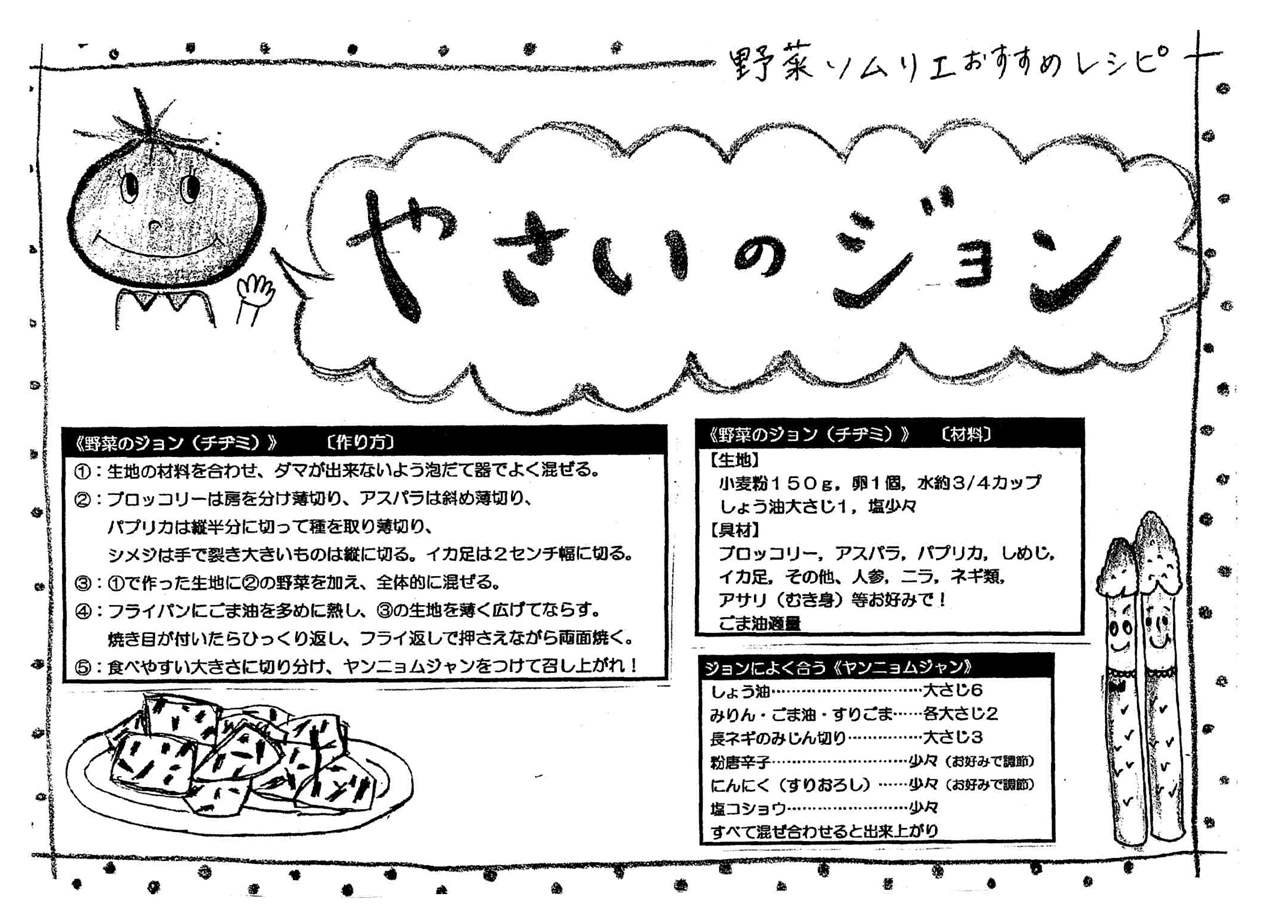 野菜ソムリエおすすめレシピ
やさいのジョン
《野菜のジョン（チヂミ）》　〔作り方〕
①：生地の材料を合わせ、ダマが出来ないよう泡だて器でよく混ぜる。
②：ブロッコリーは房を分け薄切り、アスパラは斜め薄切り、
パプリカは縦半分に切って種を取り薄切り、
シメジは手で裂き大きいものは縦に切る。イカ足は２センチ幅に切る。
③：①で作った生地に②の野菜を加え、全体的に混ぜる。
④：フライパンにごま油を多めに熱し、③の生地を薄く広げてならす。
焼き目が付いたらひっくり返し、フライ返しで押さえながら両面焼く。
⑤：食べやすい大きさに切り分け、ヤンニョムジャンをつけて召し上がれ！
《野菜のジョン（チヂミ）》　〔材料〕
【生地】
小麦粉１５０ｇ，卵１個，水約３/４カップ
しょう油大さじ１，塩少々
【具材】
ブロッコリー，アスパラ，パプリカ，しめじ，
イカ足，その他、人参，ニラ，ネギ類，
アサリ（むき身）等お好みで！
ごま油適量
ジョンによく合う《ヤンニョムジャン》
しょう油…………………………大さじ６
みりん・ごま油・すりごま……各大さじ２
長ネギのみじん切り……………大さじ３
粉唐辛子………………………少々（お好みで調節）
にんにく（すりおろし）……少々（お好みで調節）
塩コショウ……………………少々
すべて混ぜ合わせると出来上がり